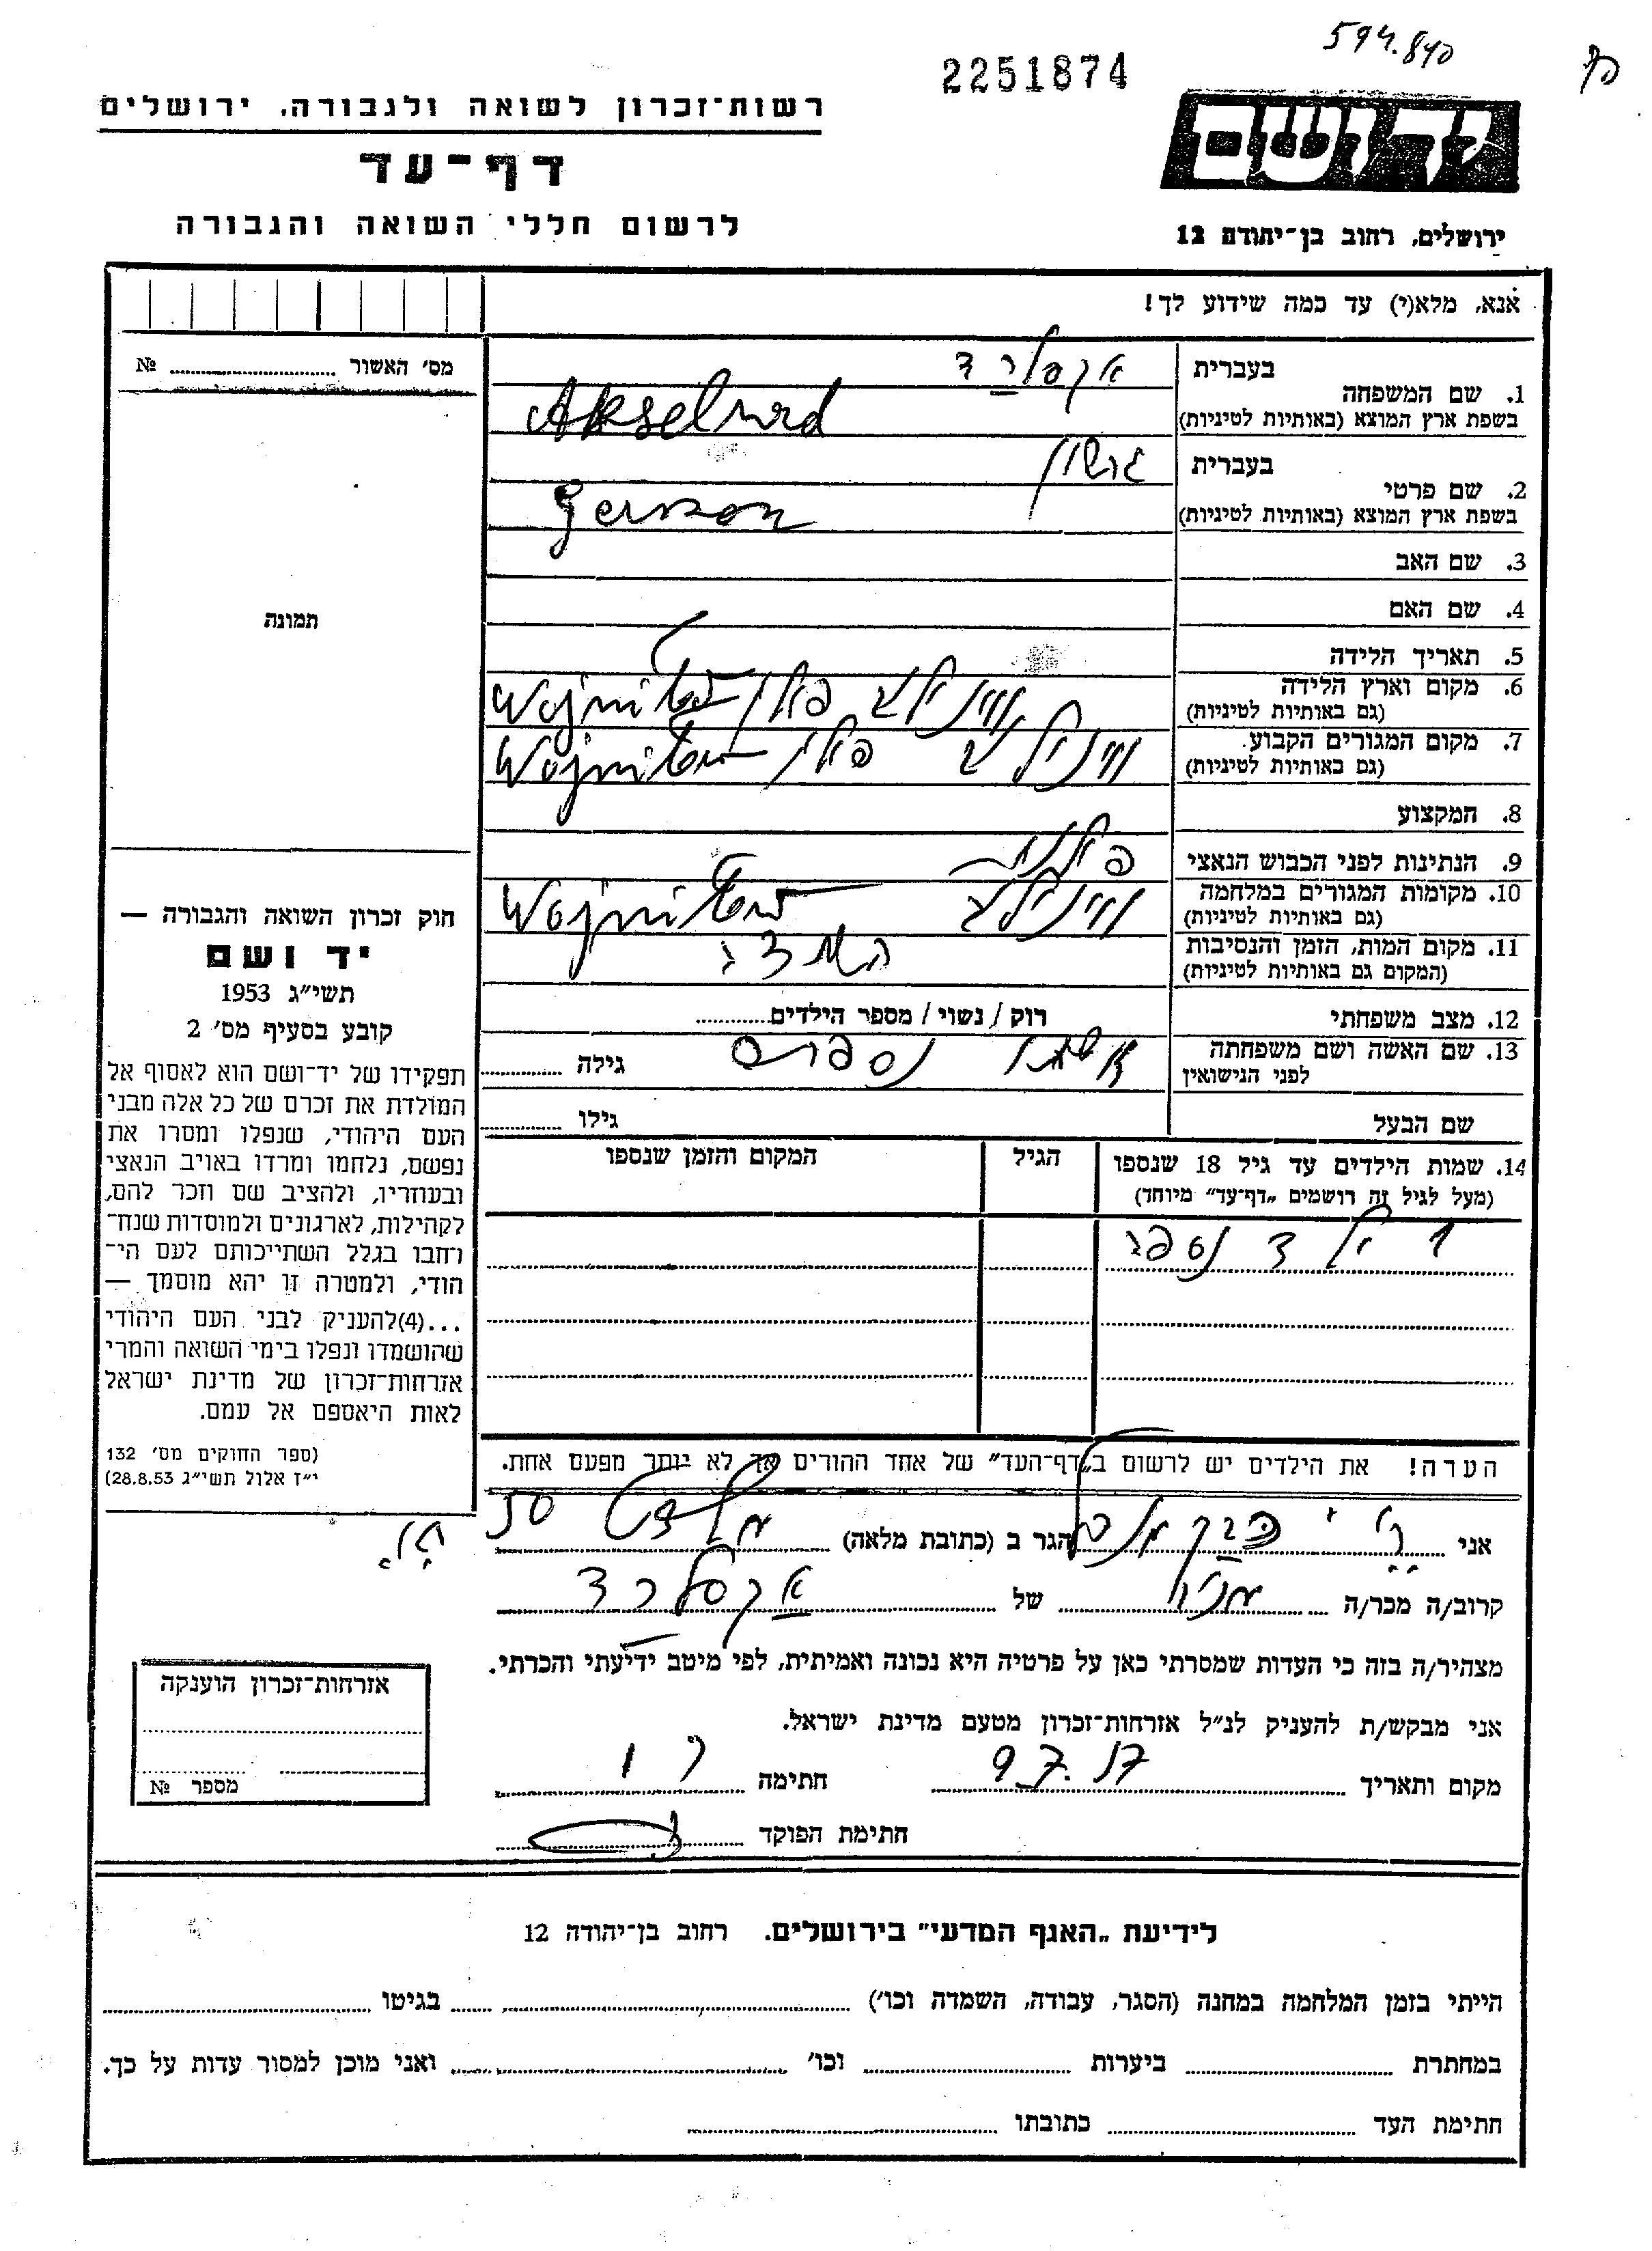 594.840
2251874
יד ושם
רשות־זכרון לשואה ולגבורה, ירושלים
דף־עד
לרשום חללי השואה והגבורה
ירושלים, רחוב בן־יהודה 12
אנא, מלא(י) עד כמה שידוע לך!
מס׳ האשור ........ №
בעברית
אקסלרד
1. שם המשפחה
בשפת ארץ המוצא (באותיות לטיניות)
Akselrad
בעברית
גרשון
2. שם פרטי
בשפת ארץ המוצא (באותיות לטיניות)
Gerszon
3. שם האב
4. שם האם
תמונה
5. תאריך הלידה
6. מקום וארץ הלידה
(גם באותיות לטיניות)
פולין
7. מקום המגורים הקבוע
(גם באותיות לטיניות)
פולין
8. המקצוע
9. הנתינות לפני הכבוש הנאצי
פולנית
10. מקומות המגורים במלחמה
(גם באותיות לטיניות)
11. מקום המות, הזמן והנסיבות
(המקום גם באותיות לטיניות)
12. מצב משפחתי
רוק / נשוי / מספר הילדים........
13. שם האשה ושם משפחתה
לפני הנישואין
גילה ........
שם הבעל
גילו ........
14. שמות הילדים עד גיל 18 שנספו
(מעל לגיל זה רושמים „דף־עד” מיוחד)
הגיל
המקום והזמן שנספו
1 ילד נספה
הערה! את הילדים יש לרשום ב„דף־העד” של אחד ההורים אך לא יותר מפעם אחת.
חוק זכרון השואה והגבורה —
יד ושם
תשי״ג 1953
קובע בסעיף מס׳ 2
תפקידו של יד־ושם הוא לאסוף אל
המולדת את זכרם של כל אלה מבני
העם היהודי, שנפלו ומסרו את
נפשם, נלחמו ומרדו באויב הנאצי
ובעוזריו, ולהציב שם וזכר להם,
לקהילות, לארגונים ולמוסדות שנח־
רחבו בגלל השתייכותם לעם הי־
הודי, ולמטרה זו יהא מוסמך —
...(4)להעניק לבני העם היהודי
שהושמדו ונפלו בימי השואה והמרי
אזרחות־זכרון של מדינת ישראל
לאות היאספם אל עמם.
(ספר החוקים מס׳ 132
י״ז אלול תשי״ג 28.8.53)
אני ........ הגר ב (כתובת מלאה) ........ 50
קרוב/ה מכר/ה ........ של אקסלרד
מצהיר/ה בזה כי העדות שמסרתי כאן על פרטיה היא נכונה ואמיתית, לפי מיטב ידיעתי והכרתי.
אני מבקש/ת להעניק לנ״ל אזרחות־זכרון מטעם מדינת ישראל.
מקום ותאריך ........ חתימה ........
חתימת הפוקד ........
אזרחות־זכרון הוענקה
מספר №
לידיעת „האגף המדעי” בירושלים. רחוב בן־יהודה 12
הייתי בזמן המלחמה במחנה (הסגר, עבודה, השמדה וכו׳) ........ בגיטו ........
במחתרת ........ ביערות ........ וכו׳ ........ ואני מוכן למסור עדות על כך.
חתימת העד ........ כתובתו ........